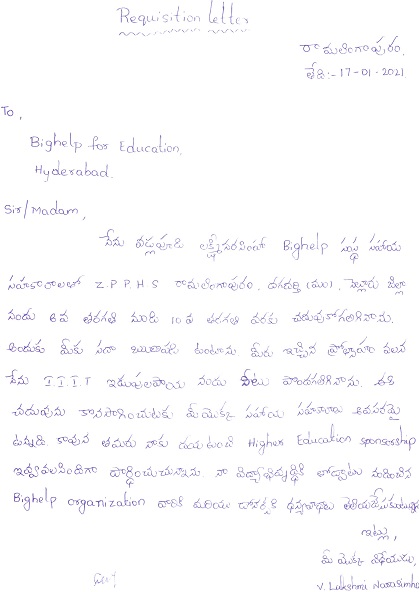 Requisition letter
రామలింగాపురం.
తేది:- 17-01-2021
To,
Bighelp for Education.
Hyderabad.
Sir/Madam,
నేను వడ్లపూడి లక్ష్మీనరసింహా Bighelp సంస్థ సహాయ
సహకారాలతో Z.P.P.H.S రామలింగాపురం, దగదర్తి (మం), నెల్లూరు జిల్లా
నందు 6వ తరగతి నుండి 10వ తరగతి వరకు చదువుకోగలిగినాను.
అందుకు మీకు సదా ఋణపడి ఉంటాను. మీరు ఇచ్చిన ప్రోత్సాహం వలన
నేను I.I.I.T ఇడుపులపాయ నందు సీటు పొందగలిగినాను. ఈ
చదువును కొనసాగించుటకు మీ యొక్క సహాయ సహకారాలు అవసరమై
ఉన్నది కావున తమరు నాకు దయవుంచి Higher Education sponsorship
ఇవ్వవలసిందిగా ప్రార్థించుచున్నాను. నా విద్యాభివృద్ధికి తోడ్పాటు నందించిన
Bighelp organization వారికి మరియు ధన్యవాదాలు తెలియజేసుకుంటున్నాను
ఇట్లు,
మీ యొక్క విధేయుడు,
V. Lakshmi Narasimha